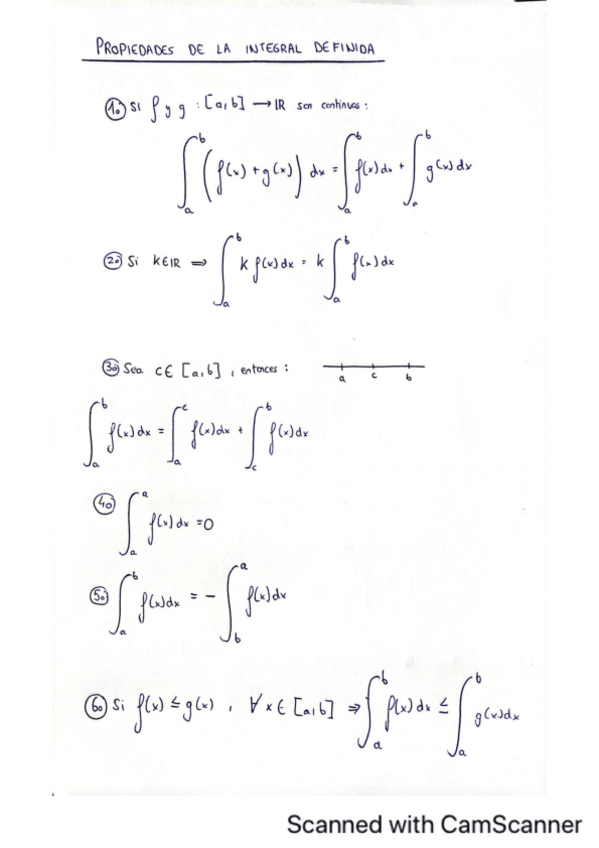 PROPIEDADES DE LA INTEGRAL DEFINIDA
1o Si f y g : [a,b] → IR son continuas :
∫_a^b (f(x) + g(x)) dx = ∫_a^b f(x) dx + ∫_a^b g(x) dx
2o Si k∈IR ⇒ ∫_a^b k f(x) dx = k ∫_a^b f(x) dx
3o Sea c∈ [a,b] , entonces :
a c b
∫_a^b f(x) dx = ∫_a^c f(x) dx + ∫_c^b f(x) dx
4o ∫_a^a f(x) dx = 0
5o ∫_a^b f(x) dx = - ∫_b^a f(x) dx
6o Si f(x) ≤ g(x) , ∀ x ∈ [a,b] ⇒ ∫_a^b f(x) dx ≤ ∫_a^b g(x) dx
Scanned with CamScanner